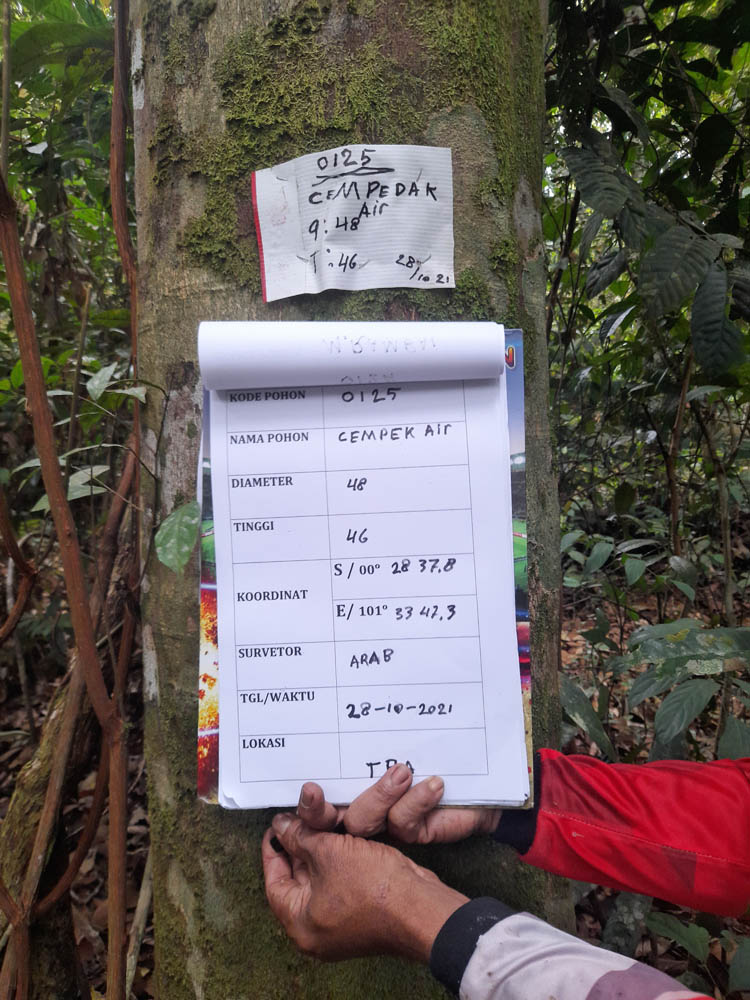 0125
CEMPEDAK
Air
q: 48
T: 46
28/10 21
KODE POHON 0125
NAMA POHON CEMPEK Air
DIAMETER 48
TINGGI 46
KOORDINAT
S / 00° 28 37,8
E/ 101° 33 47,3
SURVETOR ARAB
TGL/WAKTU 28-10-2021
LOKASI